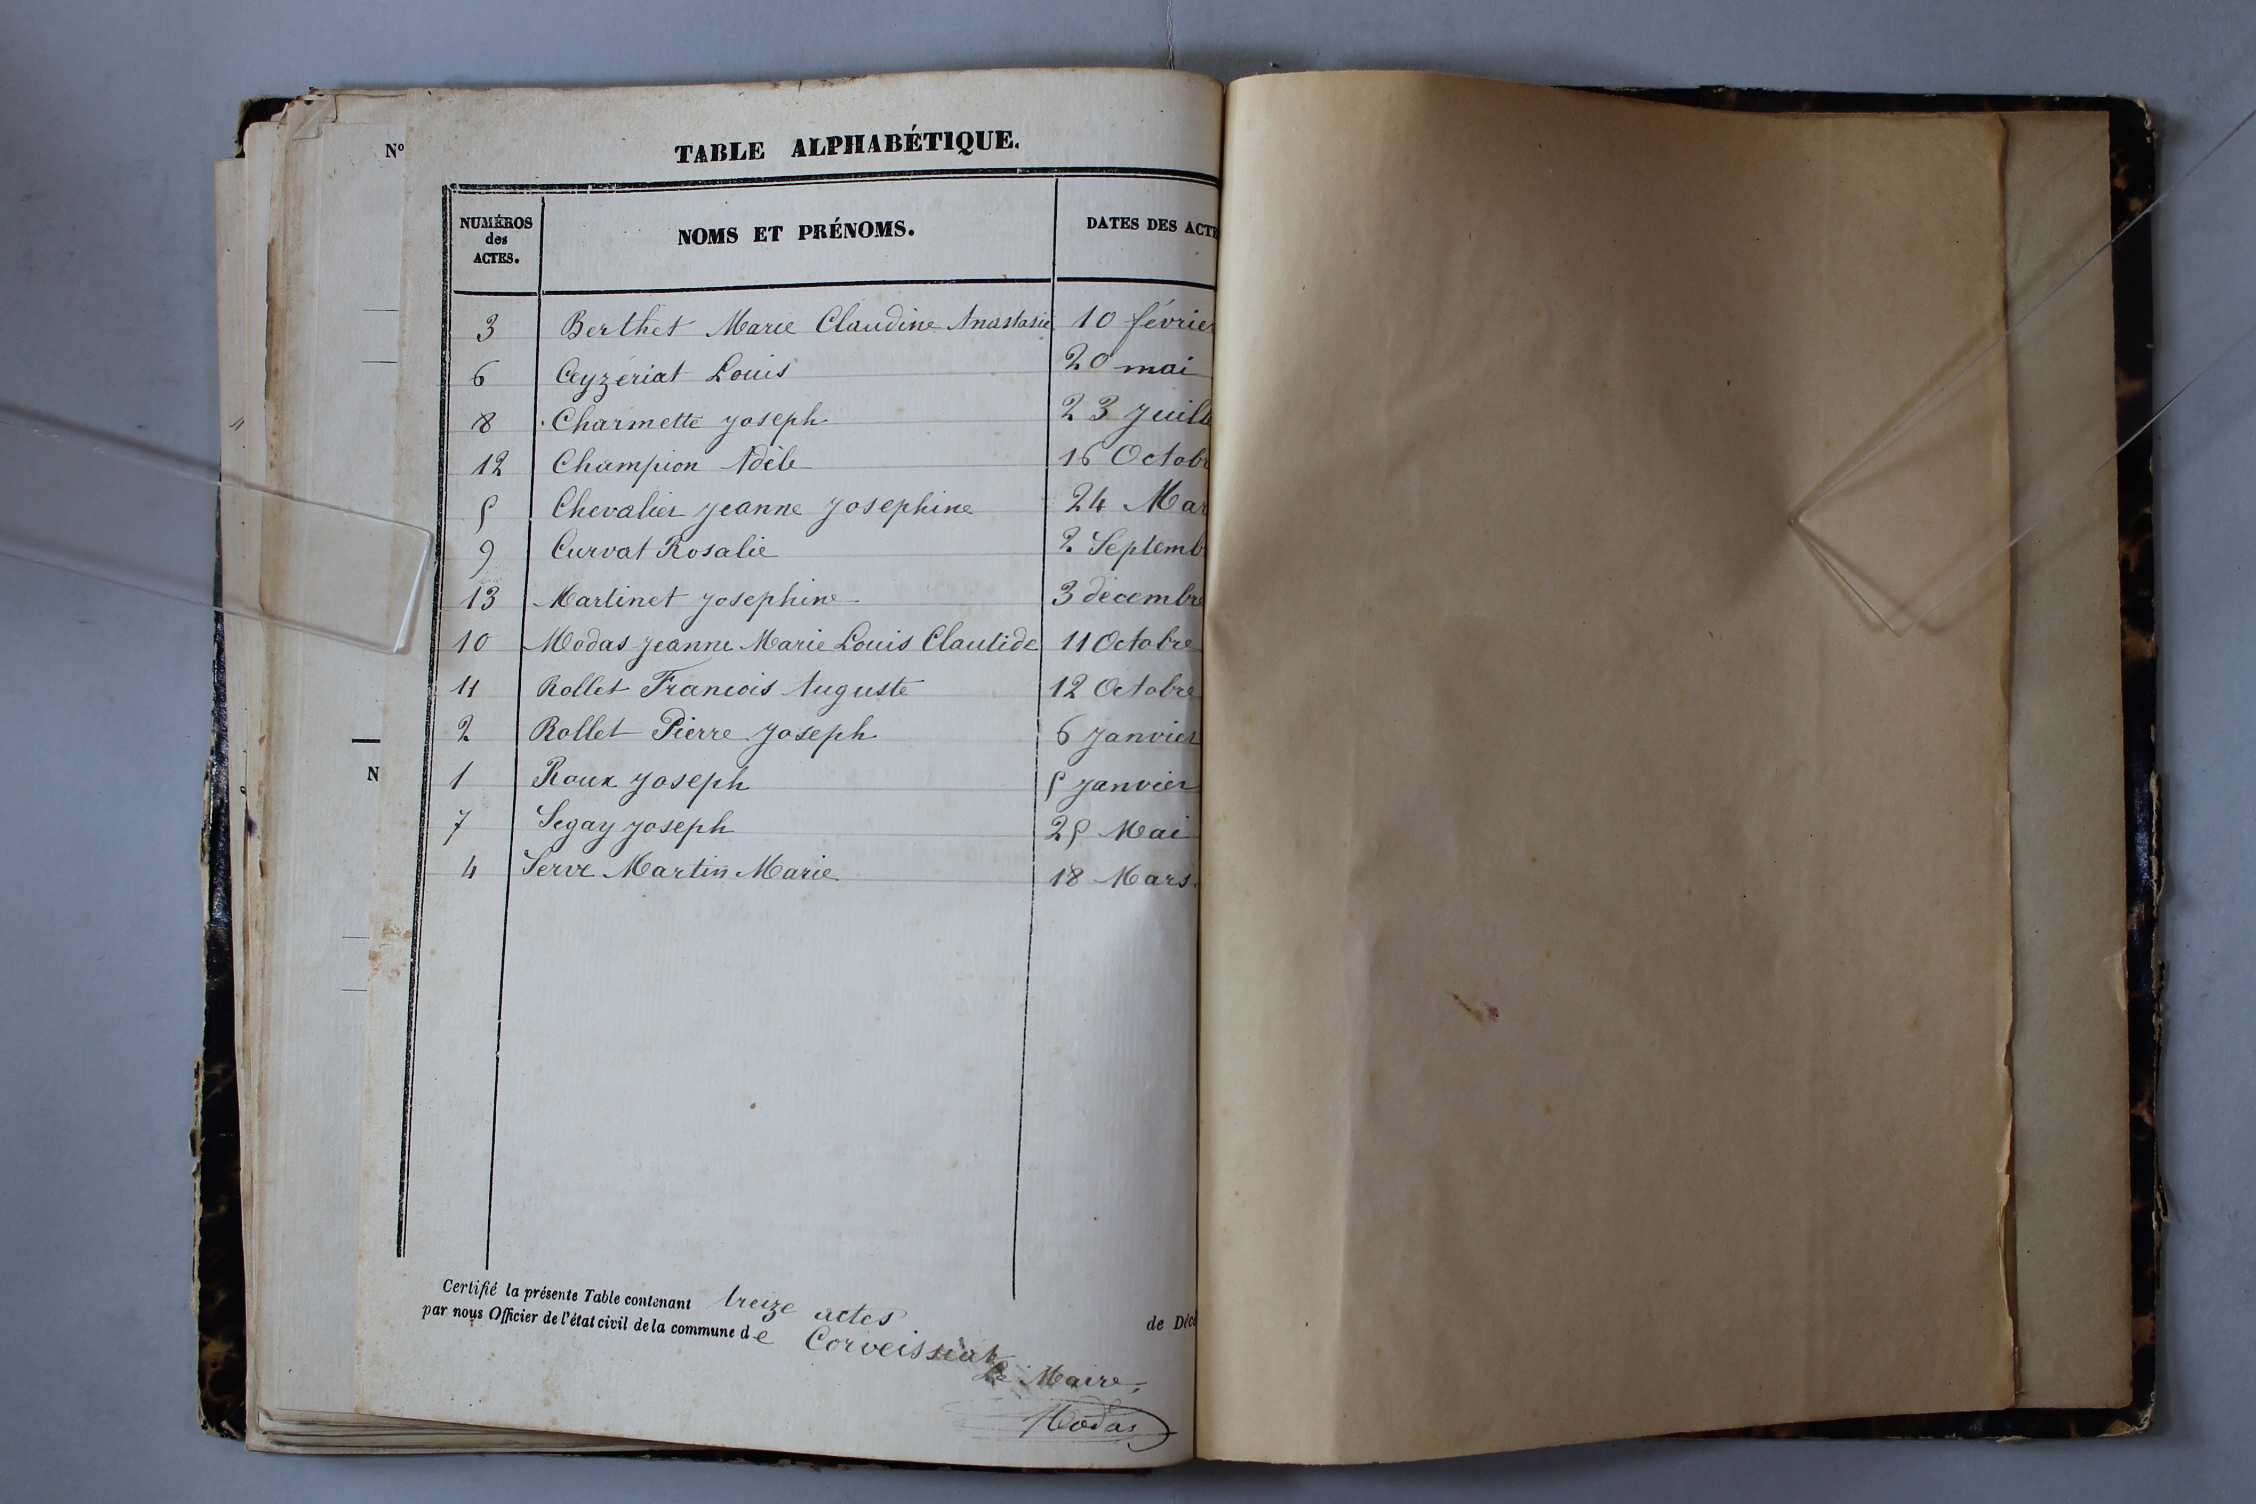 N°
N
TABLE ALPHABÉTIQUE.
NUMÉROS
des
ACTES.
NOMS ET PRÉNOMS.
DATES DES ACTE
3 Berthet Marie Claudine Anastasie 10 février
6 Ceyzériat Louis 20 mai
8 Charmette Joseph 23 Juill
12 Champion Adèle 16 Octobr
5 Chevalier Jeanne Josephine 24 Mar
9 Curvat Rosalie 2 Septemb
13 Martinet Josephine 3 décembre
10 Modas Jeanne Marie Louis Clautide 11 Octobre
11 Rollet Francois Auguste 12 Octobre
2 Rollet Pierre Joseph 6 Janvier
1 Roux Joseph 5 Janvier
7 Segay Joseph 25 Mai
4 Serve Martin Marie 18 Mars
Certifié la présente Table contenant treize actes de Déc
par nous Officier de l'état civil de la commune de Corveissiat
Le Maire,
Modas